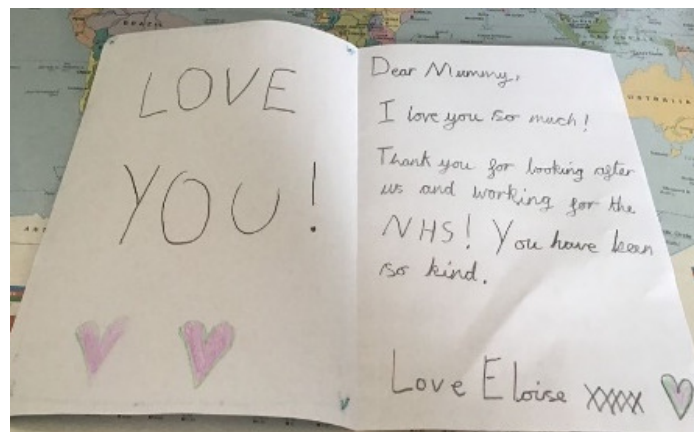 LOVE
YOU!
Dear Mummy,
I love you so much!
Thank you for looking after
us and working for the
NHS! You have been
so kind.
Love Eloise xxxx
BRAZIL
AUSTRALIA